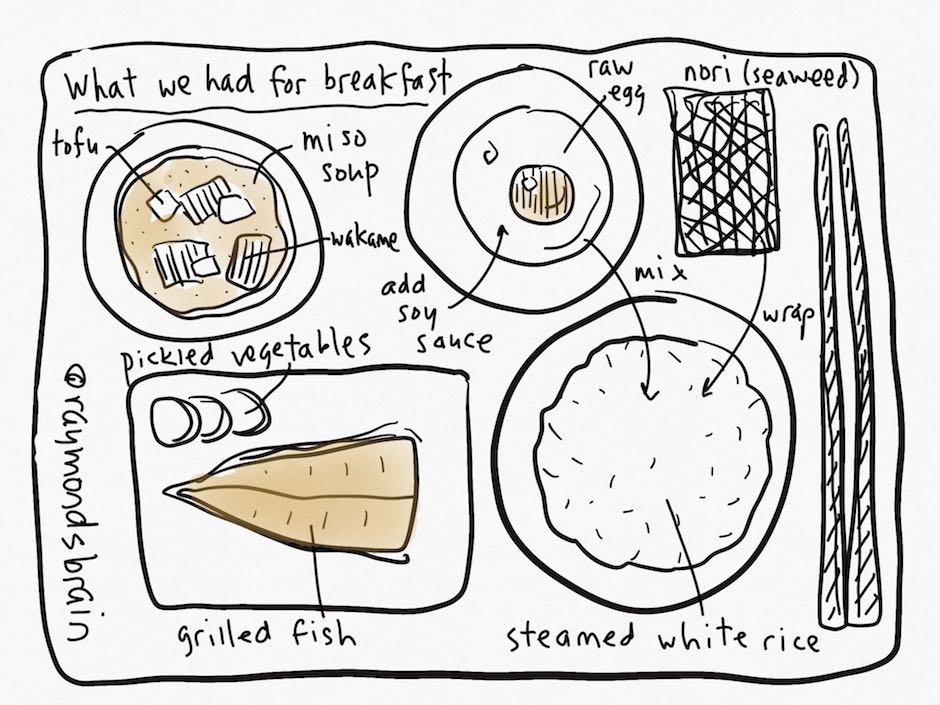 What we had for breakfast
tofu
miso
soup
wakame
raw
egg
add
soy
sauce
nori (seaweed)
mix
wrap
pickled vegetables
grilled fish
steamed white rice
©raymondsbrain